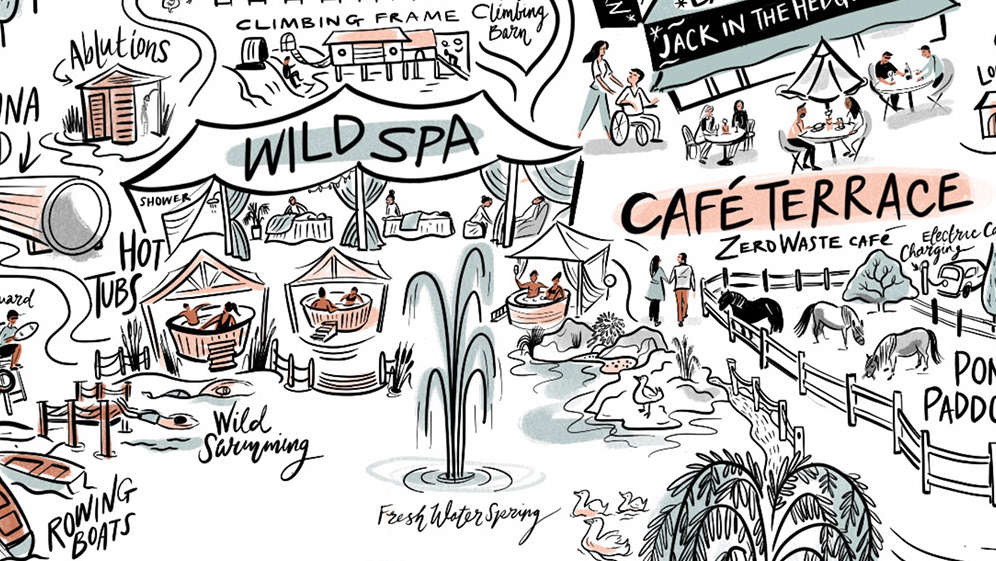 CLIMBING FRAME
Climbing
Barn
JACK IN THE HEDGE
Ablutions
WILD SPA
SHOWER
CAFÉ TERRACE
ZERO WASTE CAFÉ
Electric Ca
Charging
HOT
TUBS
PON
PADDO
Wild
Swimming
ROWING
BOATS
Fresh Water Spring